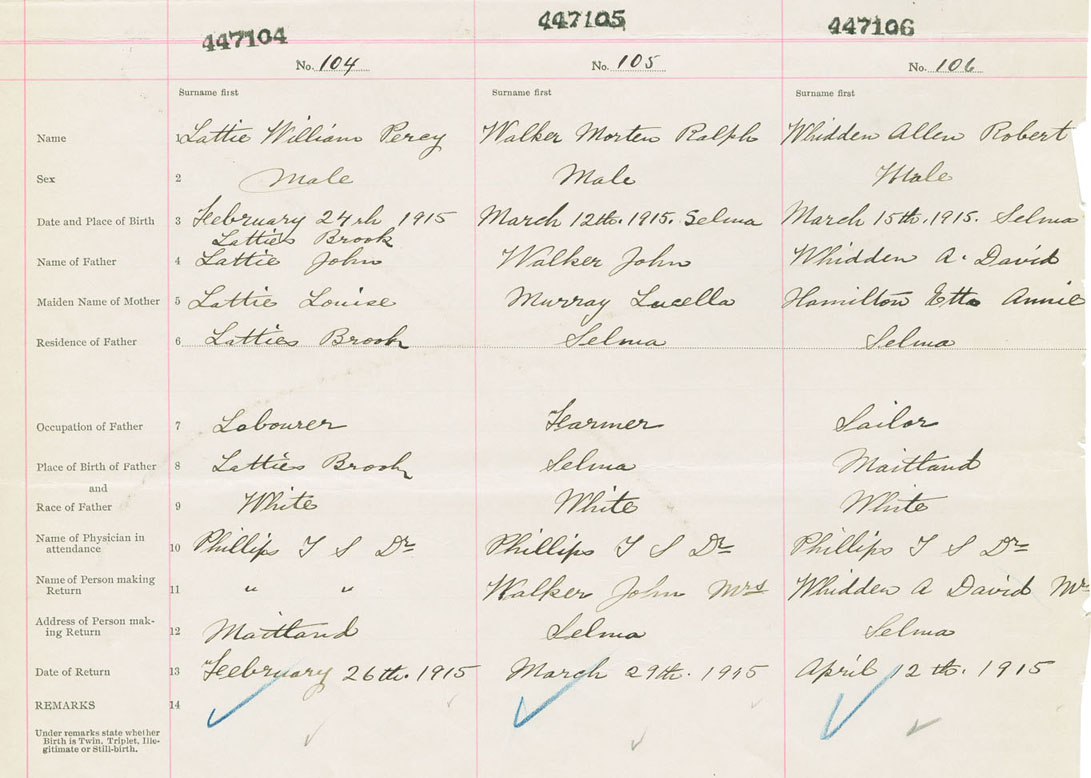 447104 447105 447106
No. 104 No. 105 No. 106
Surname first Surname first Surname first
Name 1 Lattie William Percy Walker Morten Ralph Whidden Allen Robert
Sex 2 Male Male Male
Date and Place of Birth 3 February 24th 1915 March 12th. 1915. Selma March 15th. 1915. Selma
Latties Brook
Name of Father 4 Lattie John Walker John Whidden A. David
Maiden Name of Mother 5 Lattie Louise Murray Lucella Hamilton Etta Annie
Residence of Father 6 Latties Brook Selma Selma
Occupation of Father 7 Labourer Farmer Sailor
Place of Birth of Father 8 Latties Brook Selma Maitland
and
Race of Father 9 White White White
Name of Physician in
attendance 10 Phillips T S Dr Phillips T S Dr Phillips T S Dr
Name of Person making
Return 11 " " Walker John Mrs Whidden A David
Address of Person mak-
ing Return 12 Maitland Selma Selma
Date of Return 13 February 26th. 1915 March 29th. 1915 April 12th. 1915
REMARKS 14
Under remarks state whether
Birth is Twin, Triplet, Ille-
gitimate or Still-birth.